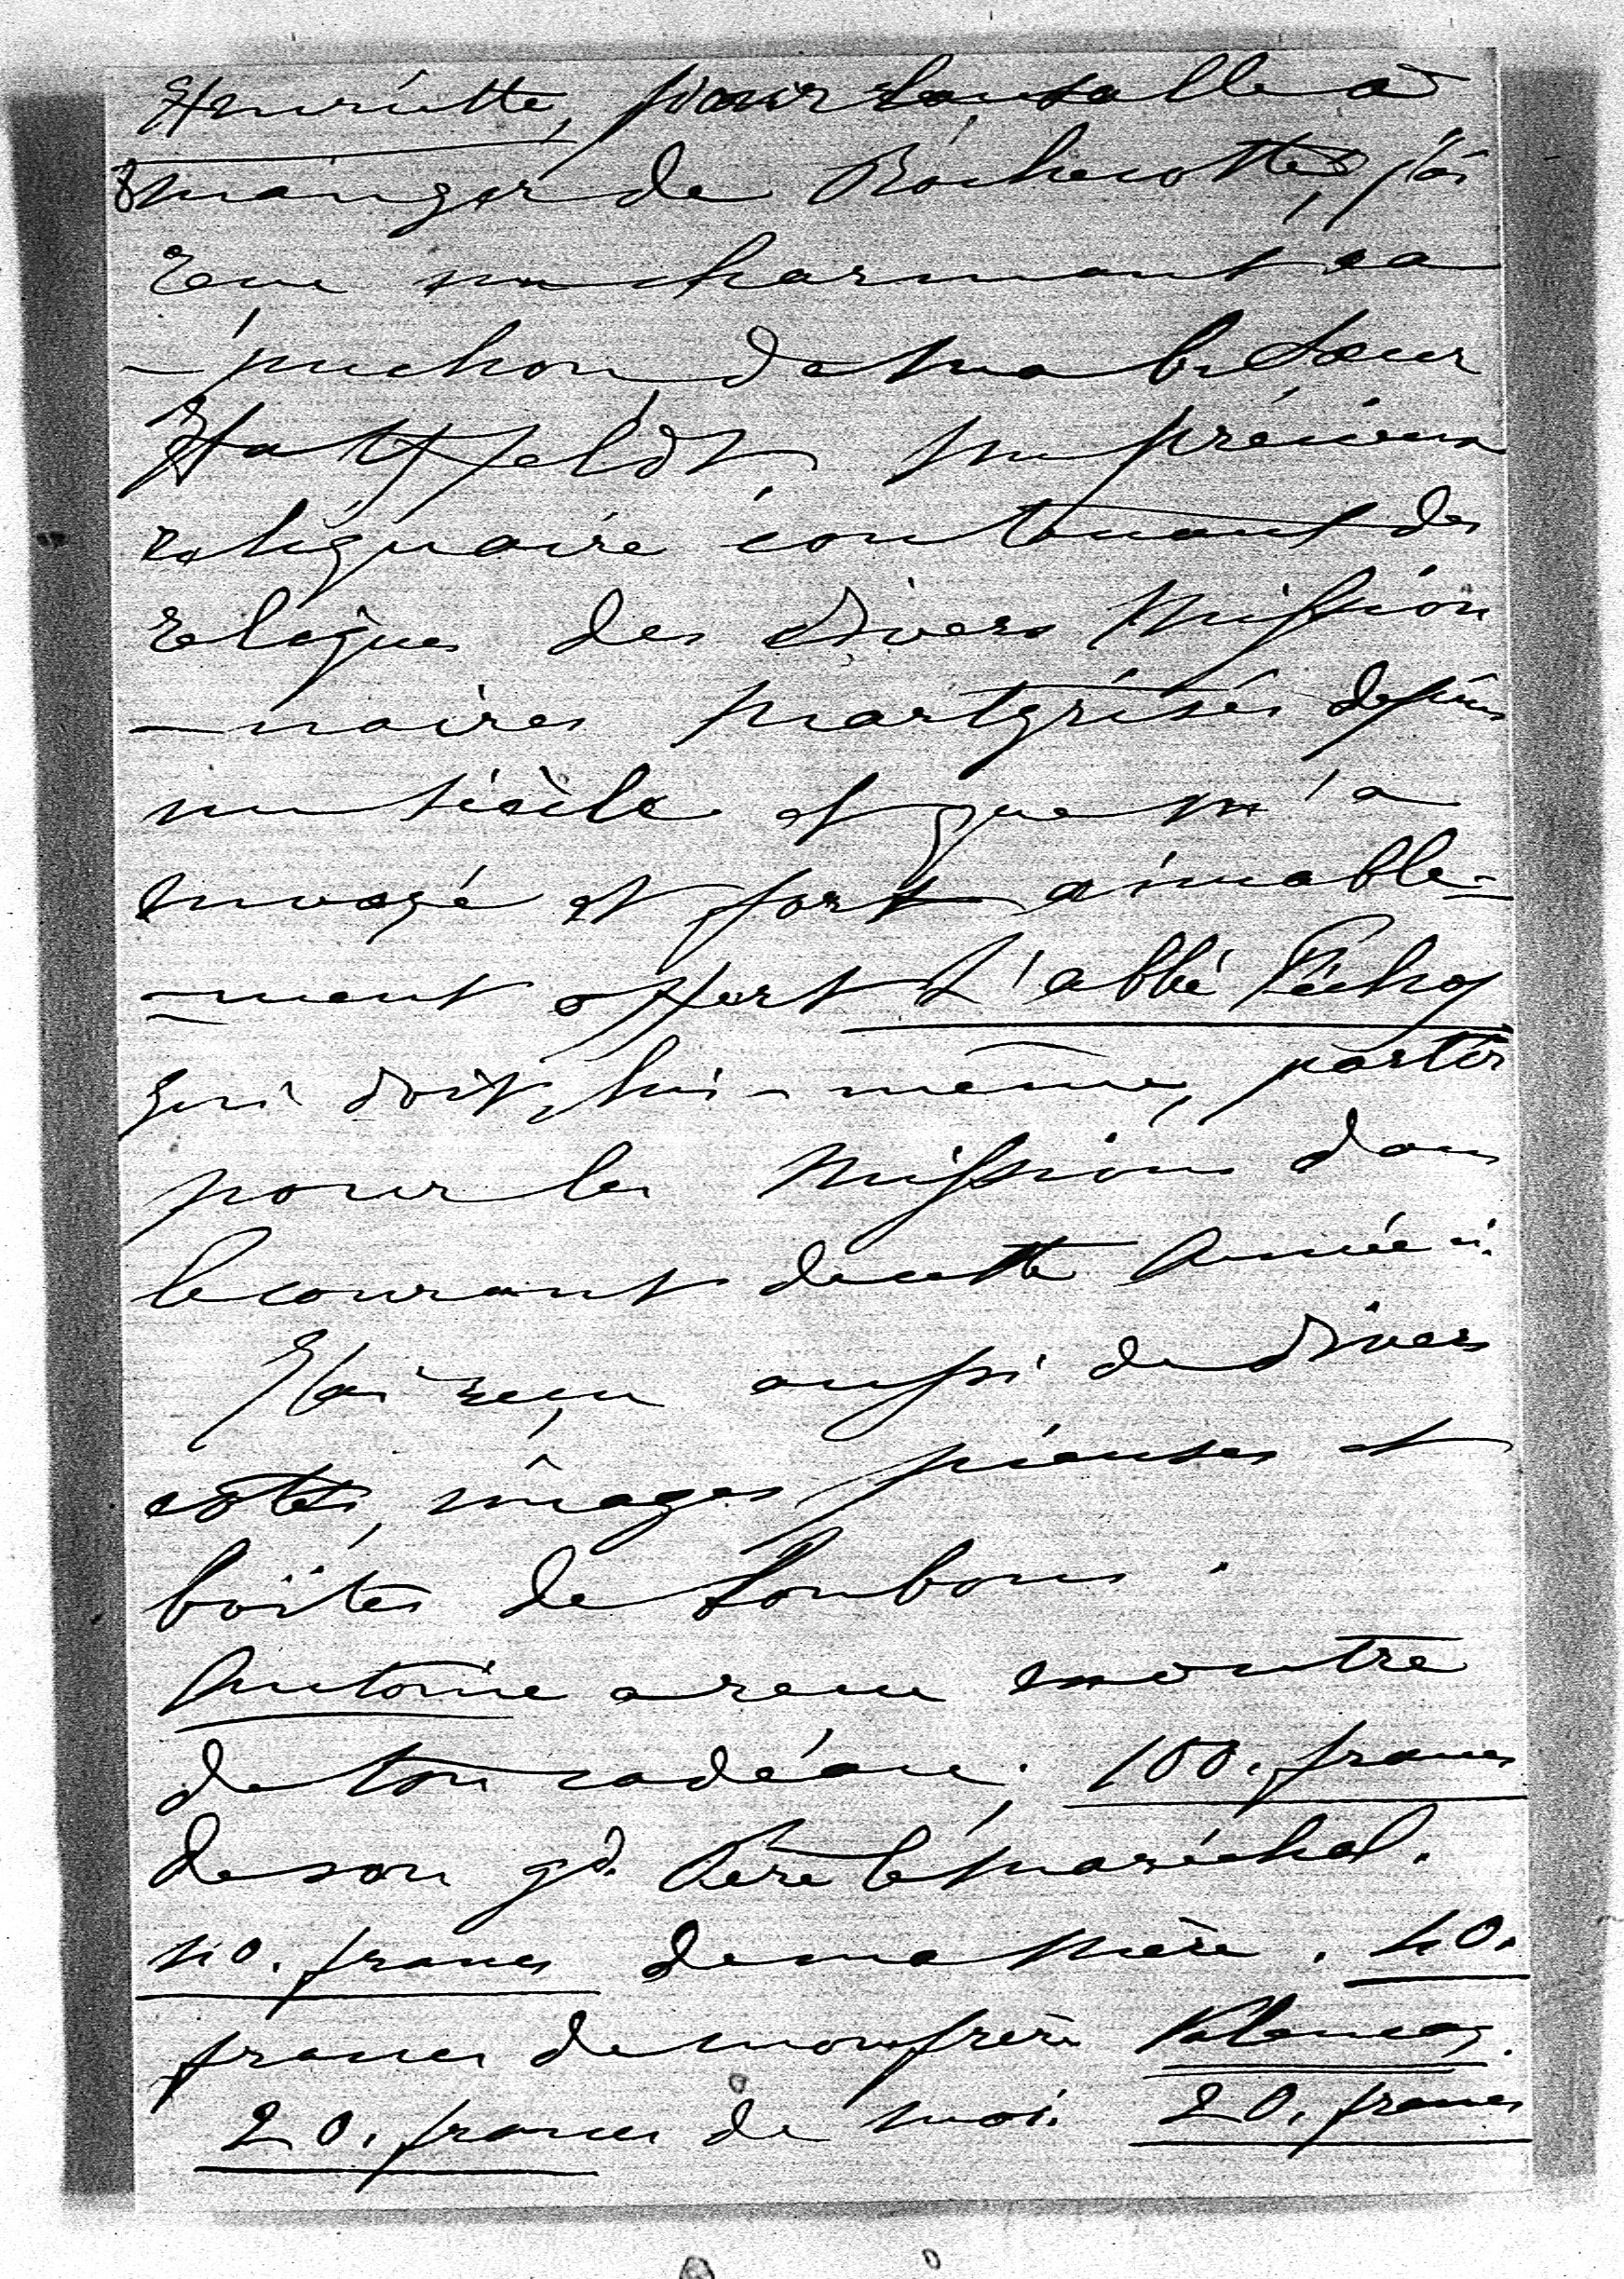 Henriette, pour la salle à
manger de Rochecotte, j'ai
reçu un charmant ca
-puchon de ma b. soeur
Hatzfeldt, un précieux
reliquaire contenant des
reliques des divers Mission
-naires martyrisés depuis
un siècle et que m'a
envoyé et fort aimable-
-ment offert l'abbé Péchoy
qui doit, lui-même, partir
pour les Missions dans
le courant de cette Année ci.
J'ai reçu aussi de divers
côtés, images pieuses et
boîtes de bonbons.
Antoine a reçu en outre
de ton cadeau, 100. francs
de son gd. Père le Maréchal.
40. francs de ma Mère. 40.
francs de mon frère
20. francs de moi. 20. francs